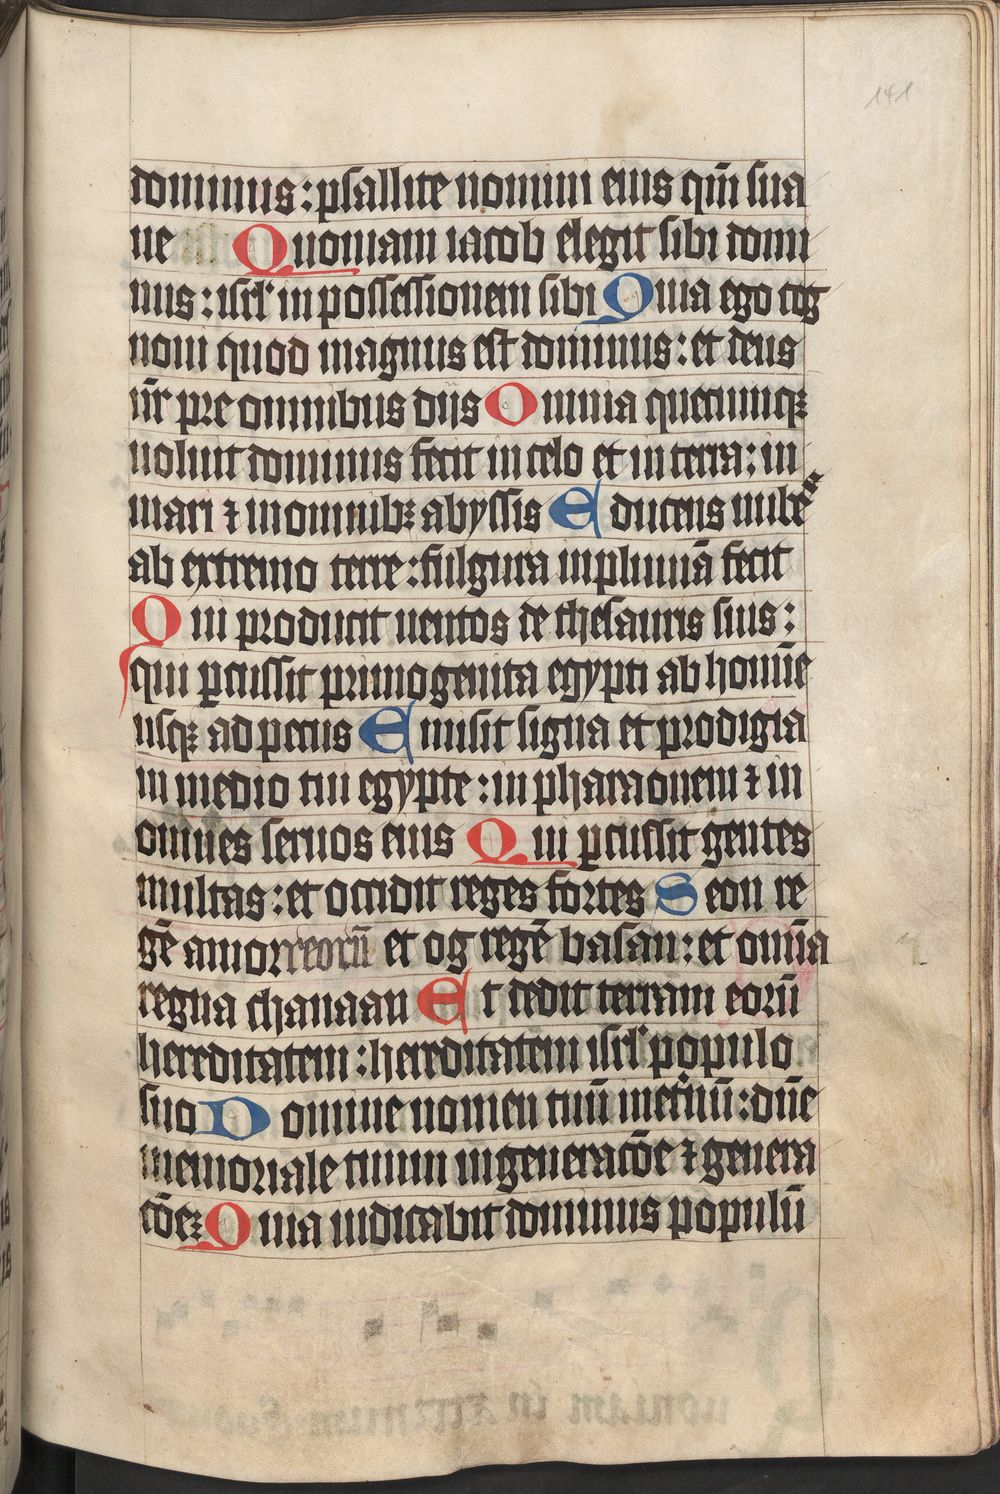 141
dominus : psallite nomini eius qm̄ sua
ue Quoniam iacob elegit sibi domi
nus : isrl' in possessionem sibi Quia ego cog
noui quod magnus est dominus : et deus
nr̄ pre omnibus diis Omnia quecumqꝫ
uoluit dominus fecit in celo et in terra : in
mari ⁊ in omnibꝫ abyssis Educens nube
ab extremo terre : fulgura in pluuiā fecit
Qui producit uentos de thesauris suis :
qui ꝑcussit primogenita egypti ab homīe
usqꝫ ad pecus Emisit signa et prodigia
in medio tui egypte : in pharaonem ⁊ in
omnes seruos eius Qui ꝑcussit gentes
multas : et occidit reges fortes Seon re
gē amorreorū et og regē basan : et omīa
regna chanaan Et dedit terram eorū
hereditatem : hereditatem isrl' populo
suo Domine nomen tuū in et'nū : dn̄e
memoriale tuum in generacōe ⁊ genera
cōeꝫ Quia iudicabit dominus populū